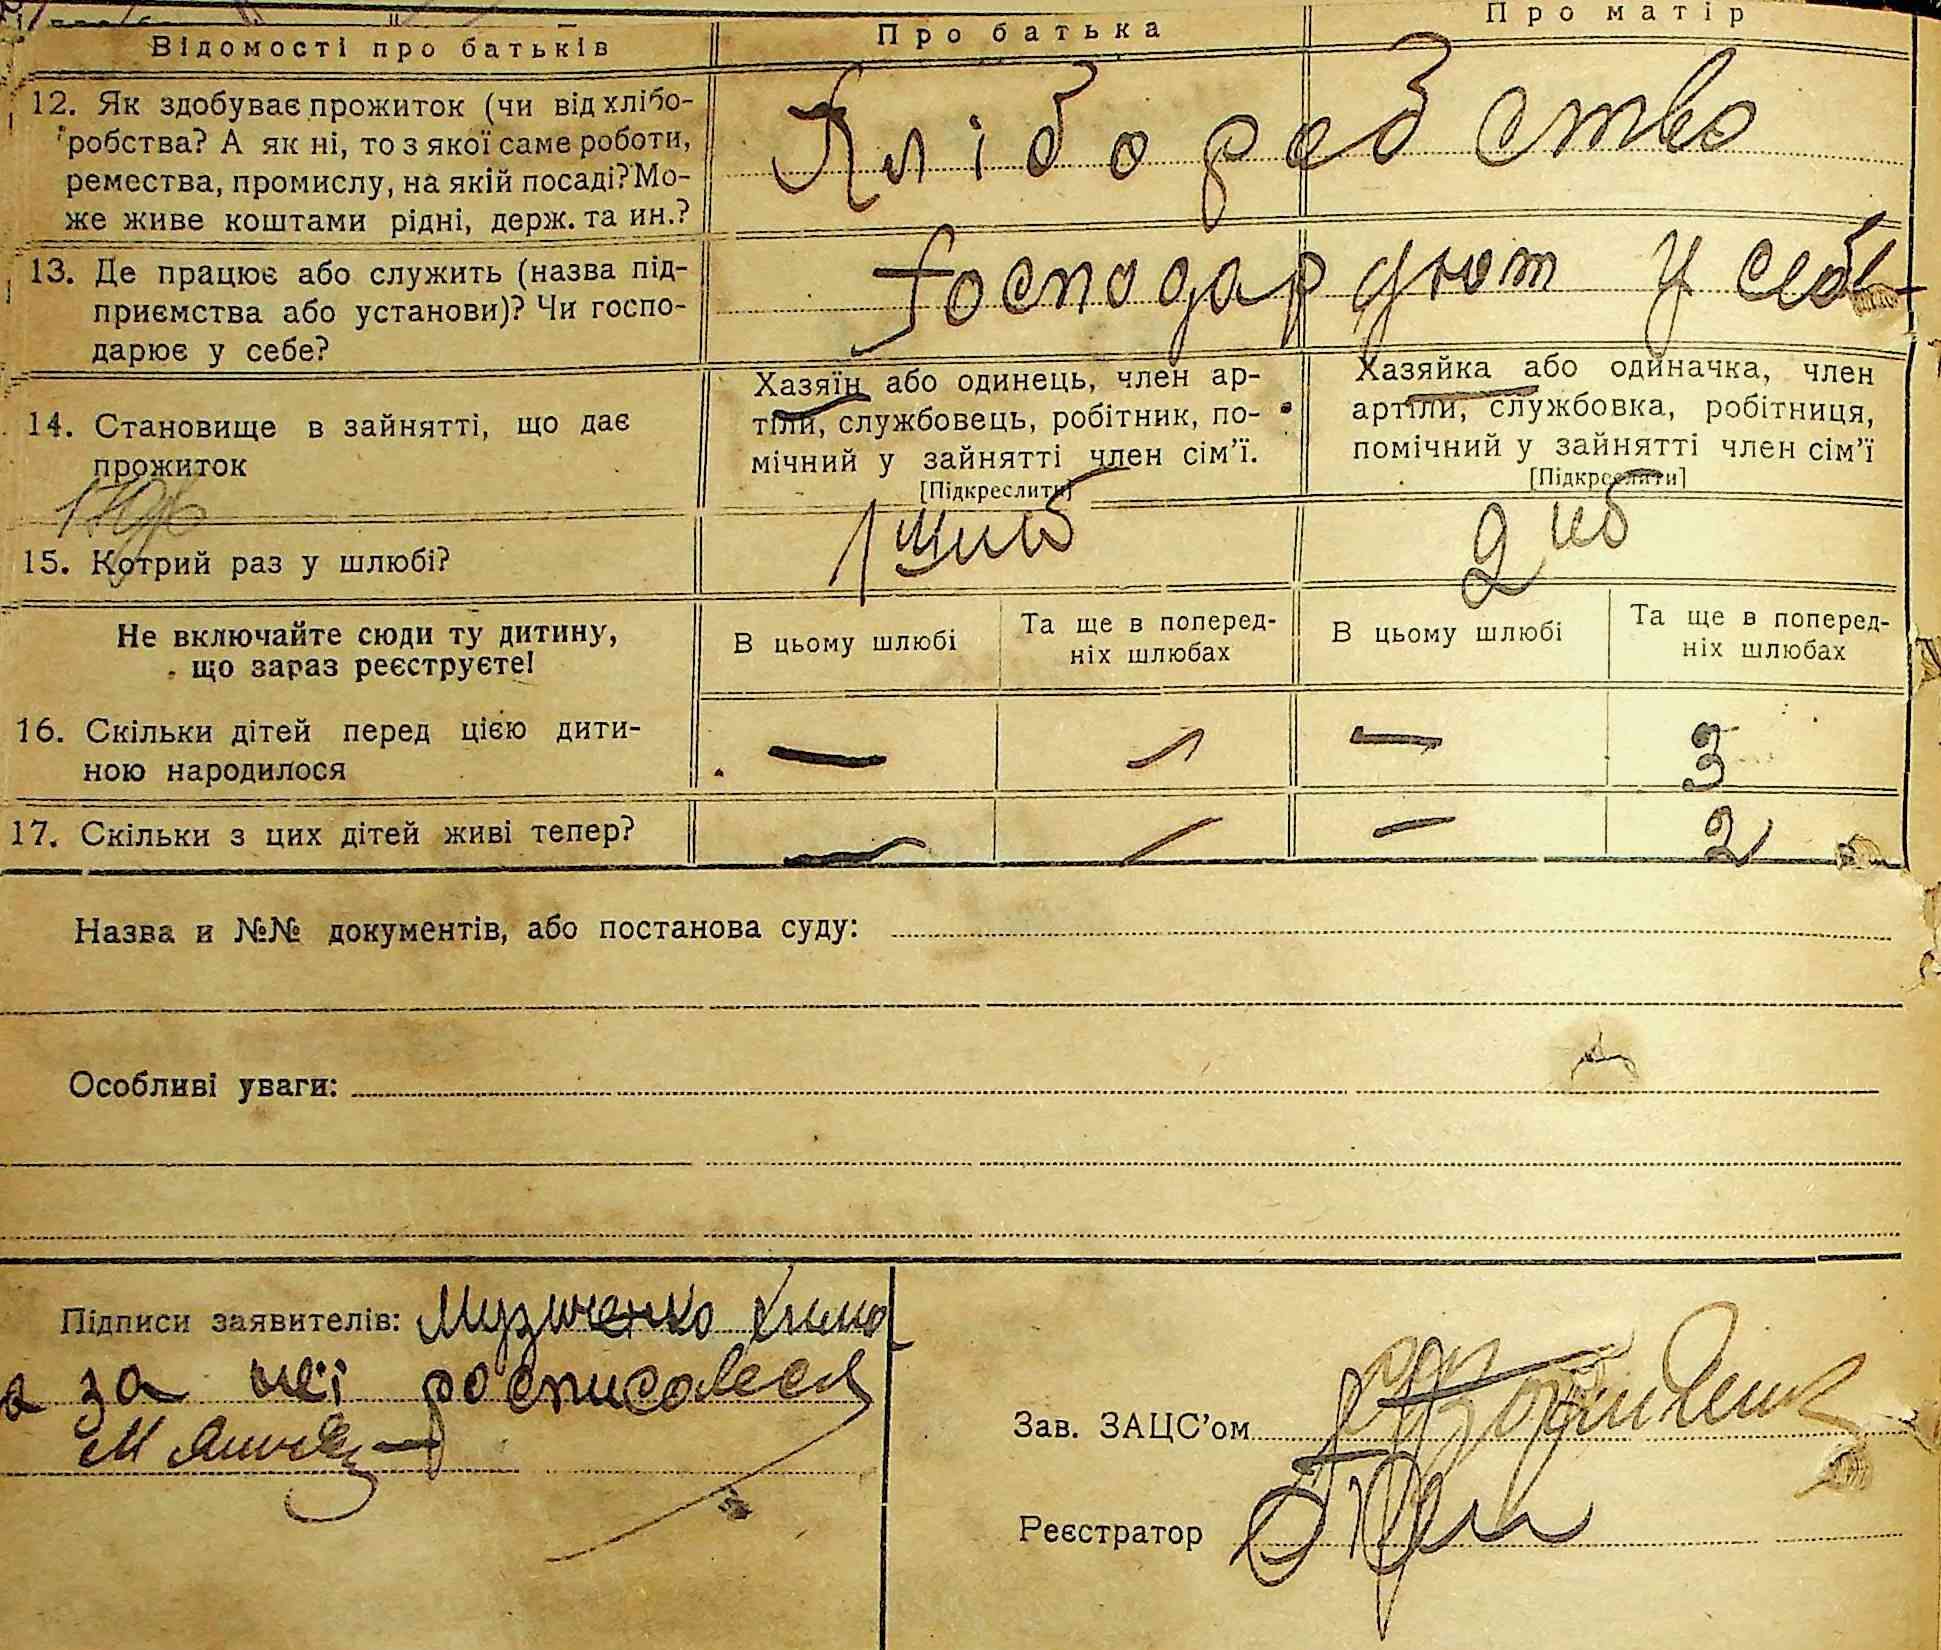 Відомості про батьків
Про батька
Про матір
12. Як здобуває прожиток (чи від хлібо-
робства? А як ні, то з якої саме роботи,
ремества, промислу, на якій посаді? Мо-
же живе коштами рідні, держ. та ин.?
Хлібороб ство
13. Де працює або служить (назва під-
приємства або установи)? Чи госпо-
дарює у себе?
Господарюют у себе
14. Становище в зайнятті, що дає
прожиток
Хазяїн або одинець, член ар-
тіли, службовець, робітник, по-
мічний у зайнятті член сім'ї.
[Підкреслити]
Хазяйка або одиначка, член
артіли, службовка, робітниця,
помічний у зайнятті член сім'ї
[Підкреслити]
15. Котрий раз у шлюбі?
1 шлюб
2 шб
Не включайте сюди ту дитину,
що зараз реєструєте!
В цьому шлюбі
Та ще в поперед-
ніх шлюбах
В цьому шлюбі
Та ще в поперед-
ніх шлюбах
16. Скільки дітей перед цією дити-
ною народилося
— — — 3
17. Скільки з цих дітей живі тепер?
— — — 2
Назва и №№ документів, або постанова суду:
Особливі уваги:
Підписи заявителів: Музиченко
а за неї росписалася
Зав. ЗАЦС'ом
Реєстратор